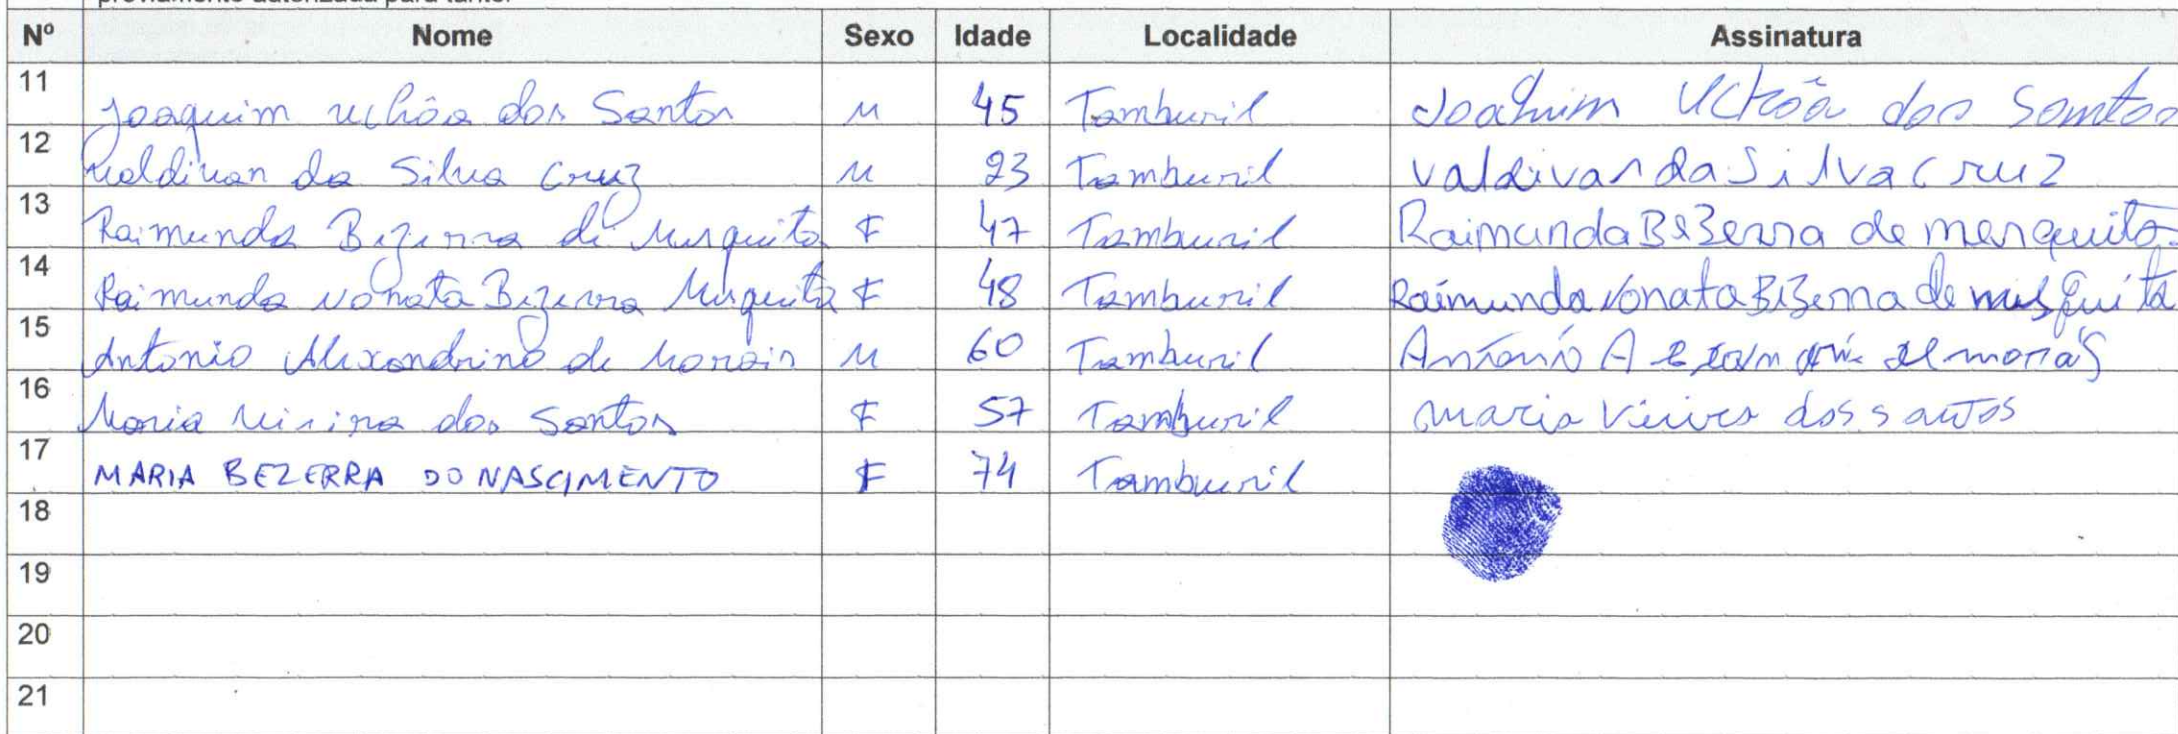 previamente autorizada para tanto.
Nº Nome Sexo Idade Localidade Assinatura
11 Joaquim Uchôa dos Santos M 45 Tamburil Joaquim Uchôa dos Santos
12 Valdivan da Silva Cruz M 23 Tamburil Valdivan da Silva Cruz
13 Raimunda Bezerra de Mesquita F 47 Tamburil Raimunda Bezerra de mesquita
14 Raimunda Nonata Bezerra Mesquita F 48 Tamburil Raimunda Nonata Bezerra de mesquita
15 Antonio Alexandrino de Morais M 60 Tamburil Antonio
16 Maria Vieira dos Santos F 57 Tamburil maria Vieira dos santos
17 MARIA BEZERRA DO NASCIMENTO F 74 Tamburil
18
19
20
21